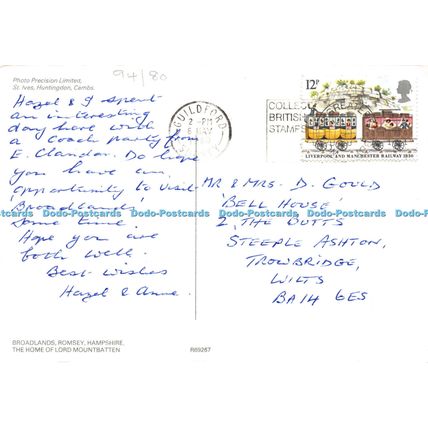 Photo Precision Limited,
St. Ives, Huntingdon, Cambs.
94/80
Hazel & I spent
an interesting
day here with
a coach party from
E. Clandon. Do hope
you have an
opportunity to visit
'Broadlands'
some time.
Hope you are
both well.
Best wishes
Hazel & Anne.
BROADLANDS, ROMSEY, HAMPSHIRE.
THE HOME OF LORD MOUNTBATTEN
R69267
GUILDFORD
2 - PM
6 MAY
COLLECT
BRITISH
STAMPS
12P
LIVERPOOL AND MANCHESTER RAILWAY 1830
MR & MRS. D. GOULD
'BELL HOUSE'
2, THE BUTTS
STEEPLE ASHTON,
TROWBRIDGE,
WILTS
BA14 6ES
Dodo-Postcards Dodo-Postcards Dodo-Postcards Dodo-Postcards